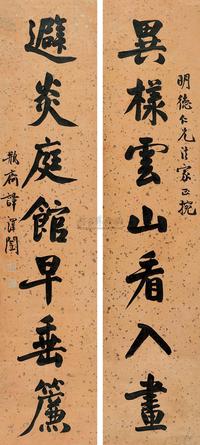 異樣雲山看入畫
明德仁兄法家正挽
避炎庭館早垂簾
瓶齋譚澤闓